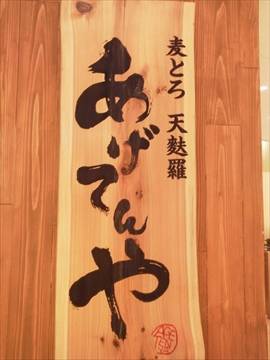 麦とろ 天麩羅
あげてんや